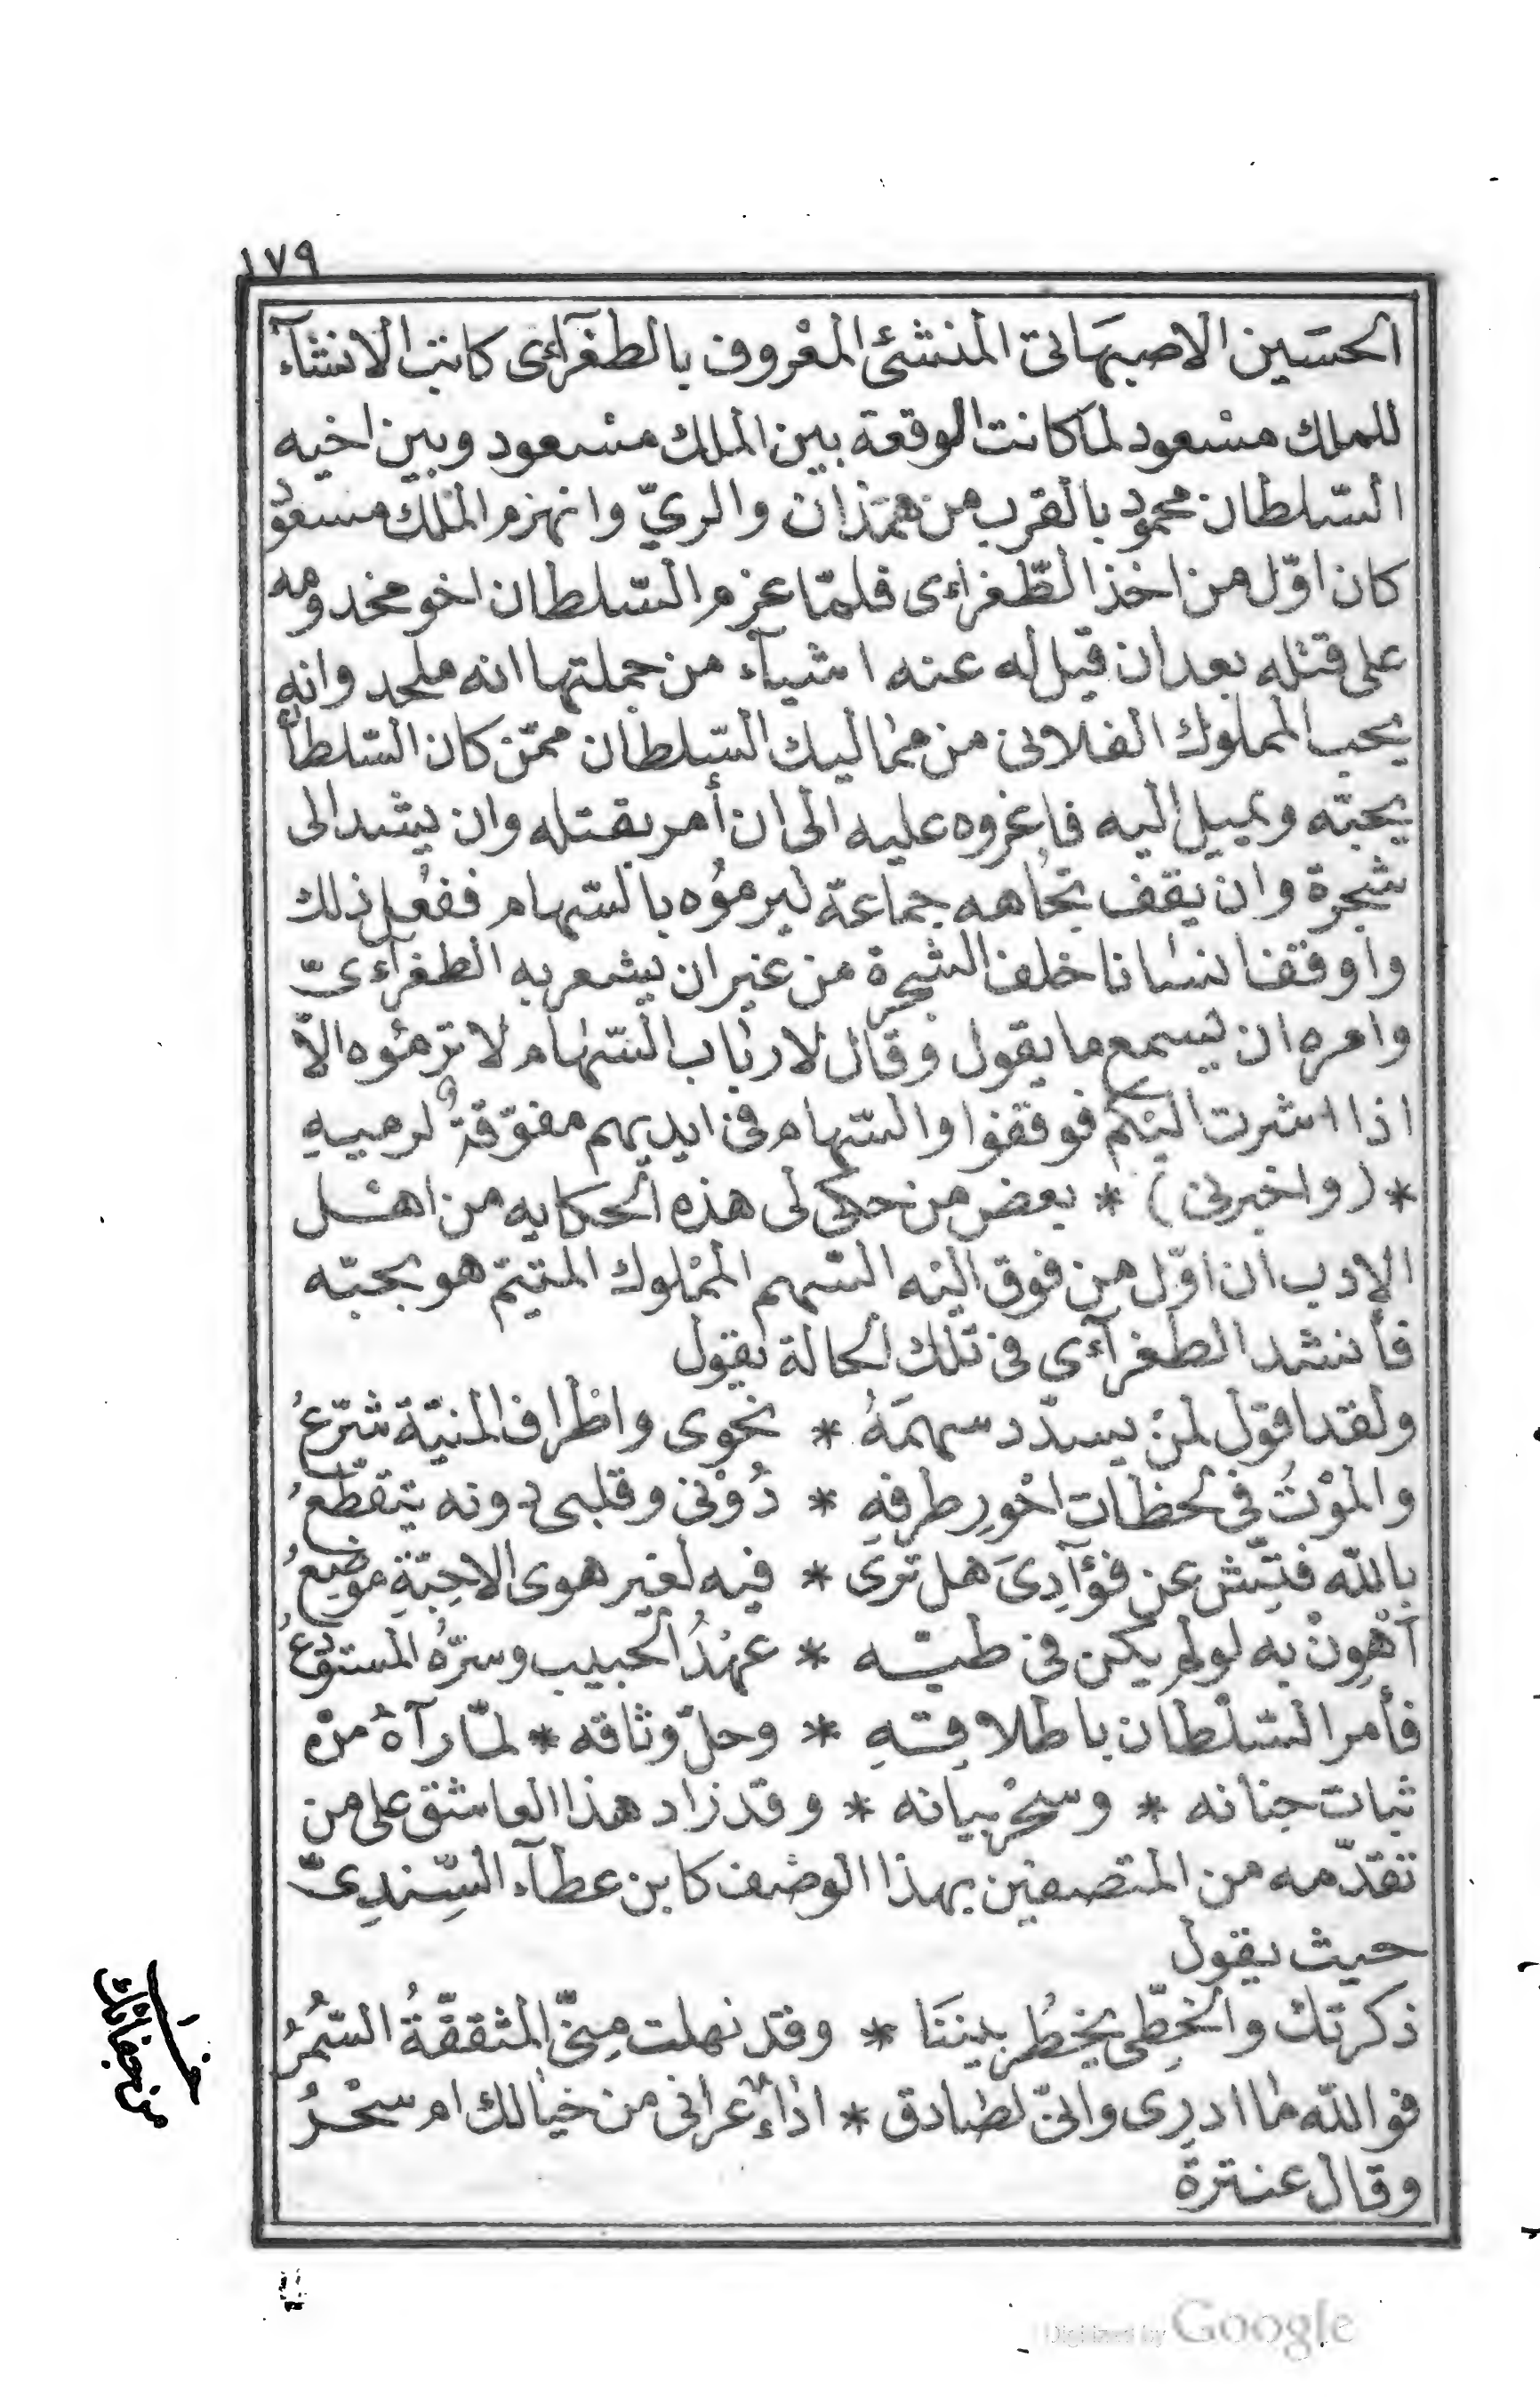 ١٧٩
الحسَين الاصبهَانى المنشئ المعْروف بالطغرآءى كاتب الانشآء
للملك مسْعود لما كانت الوقعة بين الملك مسْعود وبين اخيه
السّلطان محمود بالقرب من همَذان والريّ وانهزم الملك مسعود
كان اوّل من اخذ الطّغراءى فلمّا عزم السّلطان اخو مخدومه
على قتله بعد ان قيل له عنه اشيآء من جملتها انه ملحد وانه
يحب المملوك الفلانى من مماليك السّلطان ممّن كان السّلطان
يحبّه ويميل اليه فاغروه عليه الى ان أمر بقتله وان يشد الى
شجرة وان يقف تجاهه جماعة ليرموُه بالسّهام ففعل ذلك
واوقف انسانا خلف الشجرة من غير ان يشعر به الطغرآءىّ
وامره ان يسمع ما يقول وقال لارباب السّهام لا ترمئوه الاّ
اذا اشرت اليْكم فوقفوا والسّهام فى ايديهم مفوّقةٌ لرميهِ
* (واخبرنى) * بعض من حكى لى هذه الحكايه من اهل
الادب ان اوّل من فوق اليْه السّهم الممْلوك المتيتم هو بحبّه
فأنشد الطغرآءي فى تلك الحالة يقول
ولقد اقول لمنْ يسدّد سهمَهُ * نحوى واطْراف المنيّة شرّعُ
والموْتُ فى لحظات احْورِ طرفِهِ * دُوْنى وقلبى دونه يتقطّعُ
باللّه فتِّش عن فؤآدِىَ هل ترَى * فيه لغير هوى الاحِبّةِ موضعُ
أهْوِنْ به لو لم يكن فى طيّه * عهْدُ الحبيب وسرّهُ المستودعُ
فأمر السّلْطان باطلاقِهِ * وحلّ وثاقه * لمّا رآهُ منْ
ثبات جنانه * وسحْر بيانه * وقد زاد هذا العاشق على من
تقدّمه من المتصفين بهذا الوصف كابن عطآء السِّندِىّ
حيث يقول
ذكرتك والخطِّى يخطُر بيننَا * وقد نهلت مِنّى المثقفّةُ السّمُرُ
فو اللّه ما ادرِى وانّى لصادق * اداءٌ عرانى من خيالك ام سحْرُ
وقال عنترة
من جفانك
Digitized by Google